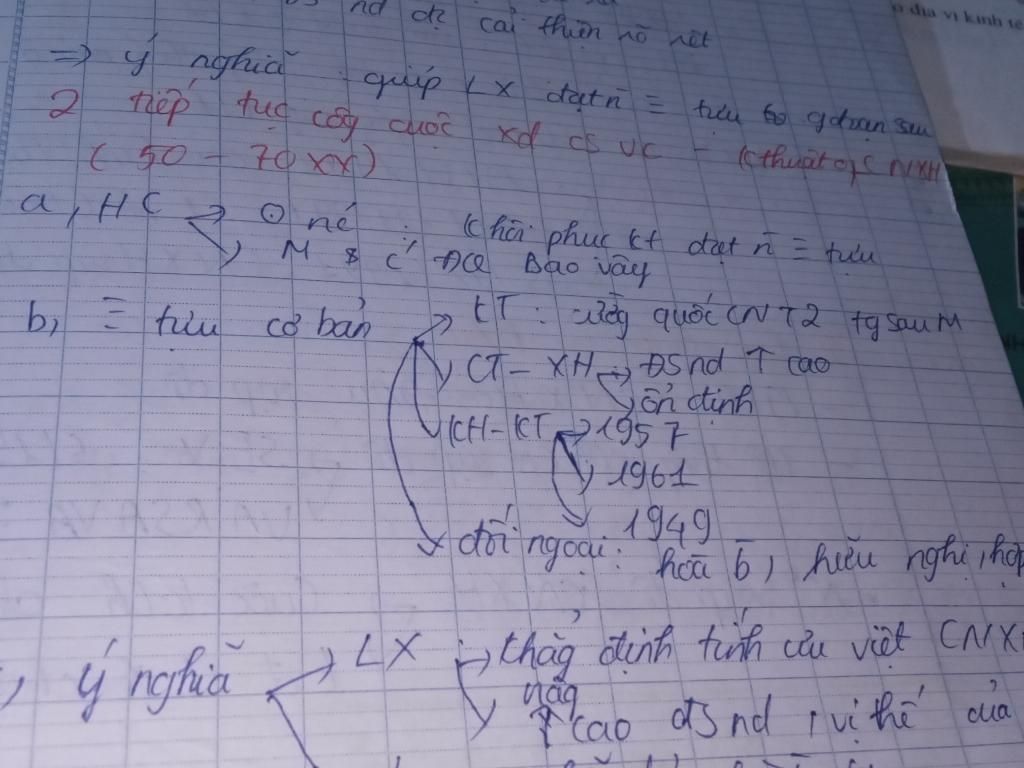 nd đc cải thiện rõ rệt
địa vị kinh tế
=> ý nghĩa : giúp LX đạt n̄ ≡ tựu to gđoạn sau
2 tiếp tục côg cuộc xd cs vc - kthuật of CNXH
( 50 - 70 XX )
a, HC → ⊙ né : khôi phục kt đạt n̄ ≡ tựu
M & ĐQ Bao vây
b, ≡ tựu cơ bản → KT : cườg quốc CN T2 tg sau M
CT - XH → ĐS nd ↑ cao
ổn định
KH - KT → 1957
1961
1949
đối ngoại : hòa b̄, hữu nghị, hợp
, ý nghĩa → LX : → khẳg định tính ưu việt CNX
nâg
↑ cao đS nd, vị thế của